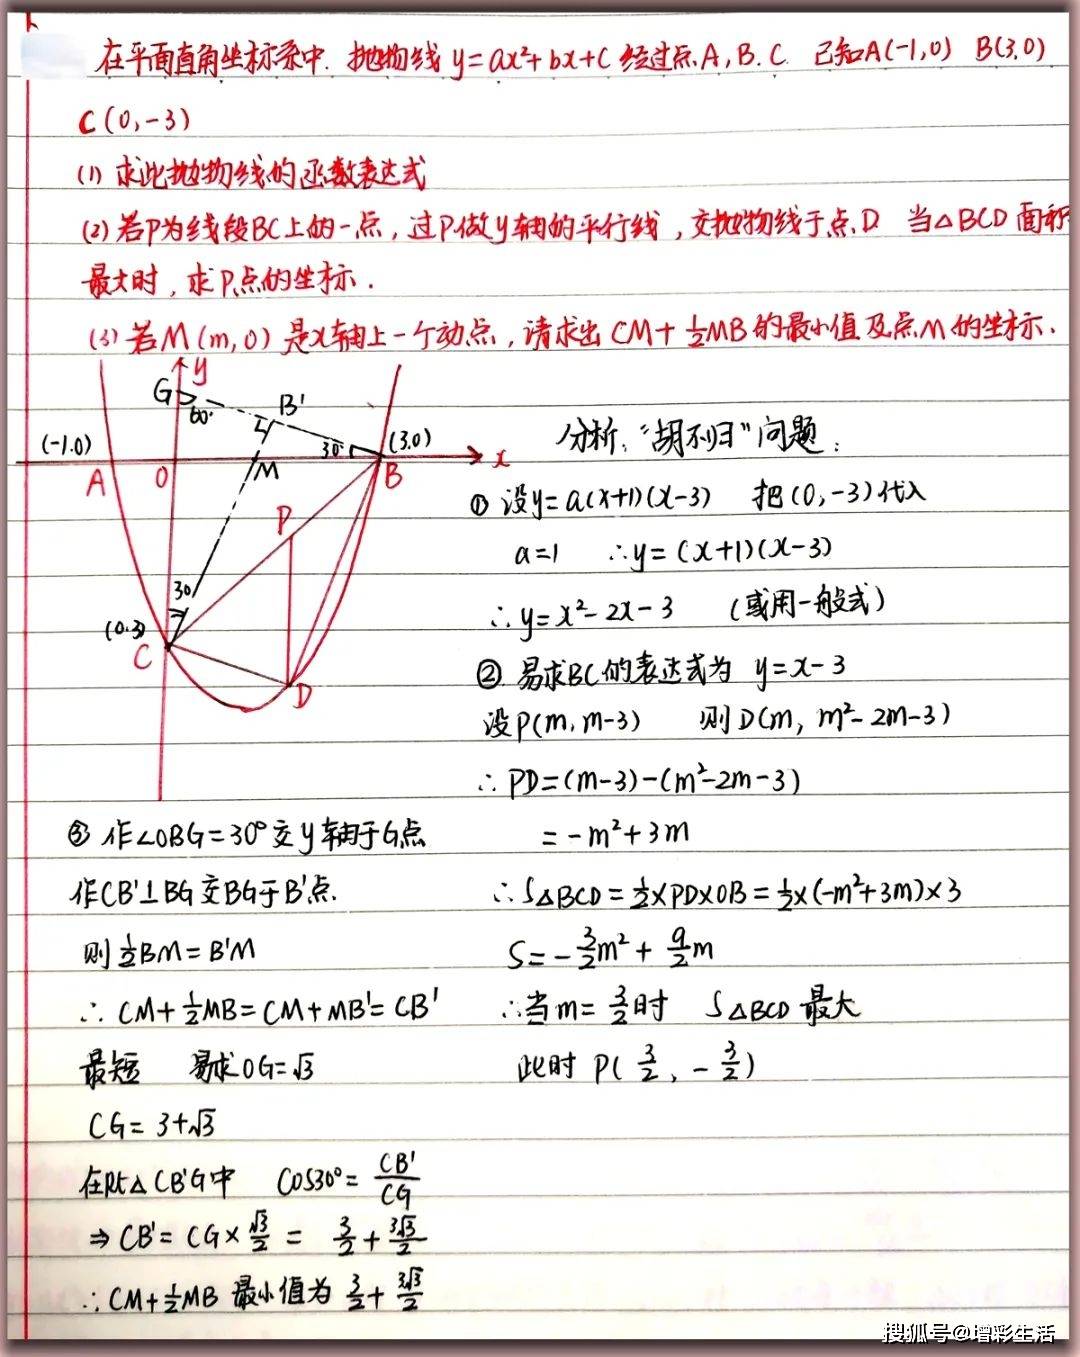 在平面直角坐标系中. 抛物线 y=ax²+bx+c 经过点A,B.C. 已知A(-1,0) B(3,0)
C(0,-3)
(1) 求此抛物线的函数表达式
(2) 若P为线段BC上的一点,过P做y轴的平行线,交抛物线于点D 当△BCD面积
最大时,求P点的坐标.
(3) 若M(m,0)是x轴上一个动点,请求出CM+½MB的最小值及点M的坐标.
y
G
60°
B'
(-1.0)
30°
(3.0)
x
A
O
M
B
P
30
(0.3)
C
D
分析:“胡不归”问题:
① 设y=a(x+1)(x-3) 把(0,-3)代入
a=1 ∴y=(x+1)(x-3)
∴y=x²-2x-3 (或用一般式)
② 易求BC的表达式为 y=x-3
设P(m,m-3) 则D(m, m²-2m-3)
∴PD=(m-3)-(m²-2m-3)
=-m²+3m
∴S△BCD=½×PD×OB=½×(-m²+3m)×3
S=-3/2m²+9/2m
∴当m=3/2时 S△BCD最大
此时 P(3/2,-3/2)
③ 作∠OBG=30°交y轴于G点
作CB'⊥BG交BG于B'点.
则½BM=B'M
∴CM+½MB=CM+MB'=CB'
最短 易求OG=√3
CG=3+√3
在Rt△CB'G中 COS30°=CB'/CG
⇒CB'=CG×√3/2=3/2+3√3/2
∴CM+½MB最小值为3/2+3√3/2
搜狐号@增彩生活